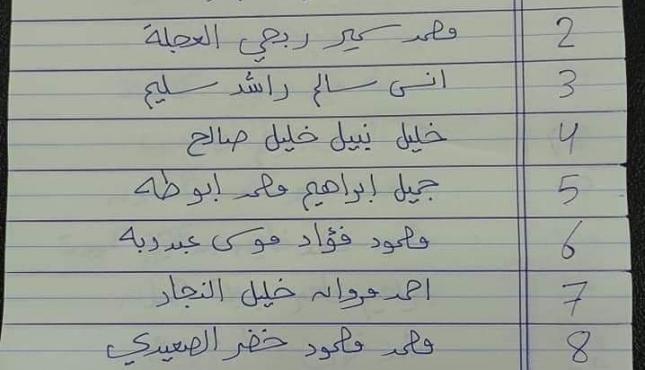 2 محمد سمير ربحي العجلة
3 انس سالم راشد سليم
4 خليل نبيل خليل صالح
5 جميل ابراهيم محمد ابو طه
6 محمود فؤاد موسى عبدربه
7 احمد مروان خليل النجار
8 محمد محمود خضر الصعيدي